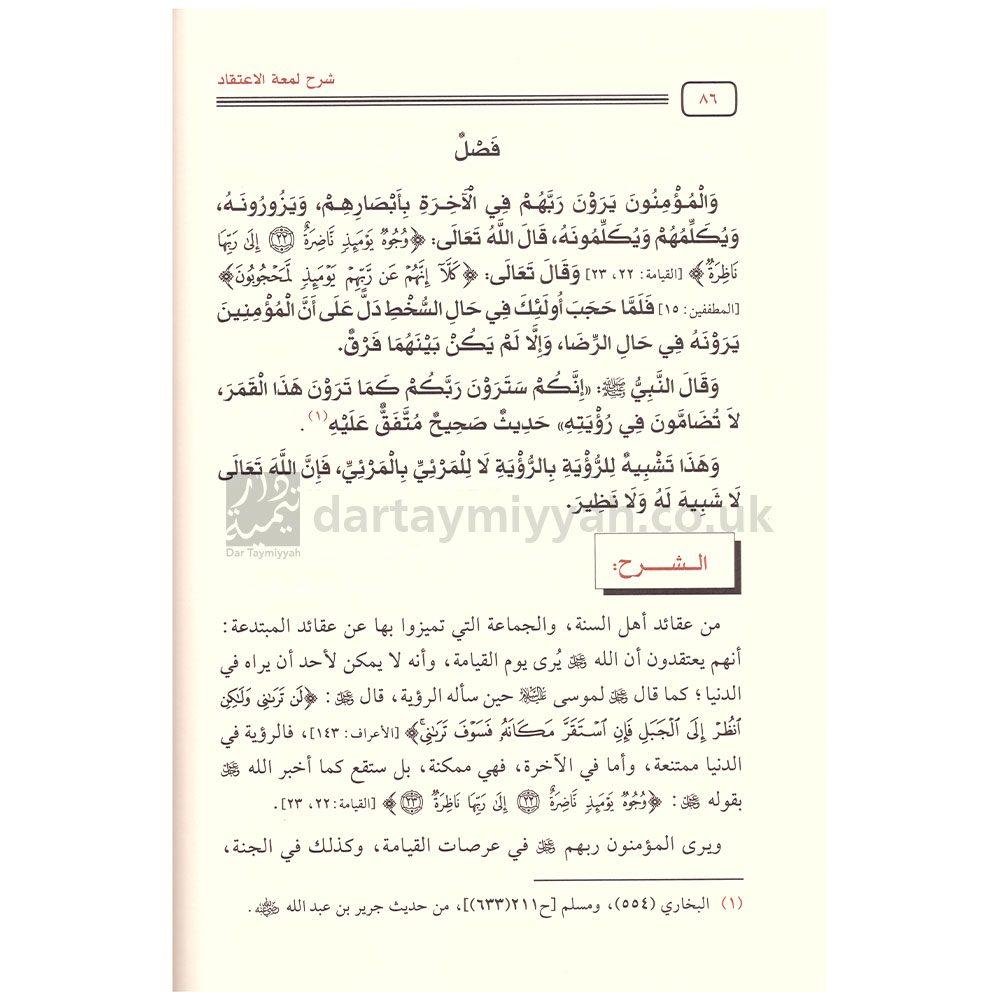 شرح لمعة الاعتقاد
٨٦
فَصْلٌ
وَالْمُؤْمِنُونَ يَرَوْنَ رَبَّهُمْ فِي الْآخِرَةِ بِأَبْصَارِهِمْ، وَيَزُورُونَهُ،
وَيُكَلِّمُهُمْ وَيُكَلِّمُونَهُ، قَالَ اللَّهُ تَعَالَى: ﴿وُجُوهٌ يَوْمَئِذٍ نَّاضِرَةٌ ٢٢ إِلَىٰ رَبِّهَا
نَاظِرَةٌ﴾ [القيامة: ٢٢، ٢٣] وَقَالَ تَعَالَى: ﴿كَلَّا إِنَّهُمْ عَن رَّبِّهِمْ يَوْمَئِذٍ لَّمَحْجُوبُونَ﴾
[المطففين: ١٥] فَلَمَّا حَجَبَ أُولَئِكَ فِي حَالِ السُّخْطِ دَلَّ عَلَى أَنَّ الْمُؤْمِنِينَ
يَرَوْنَهُ فِي حَالِ الرِّضَا، وَإِلَّا لَمْ يَكُنْ بَيْنَهُمَا فَرْقٌ.
وَقَالَ النَّبِيُّ ﷺ: «إِنَّكُمْ سَتَرَوْنَ رَبَّكُمْ كَمَا تَرَوْنَ هَذَا الْقَمَرَ،
لاَ تُضَامُّونَ فِي رُؤْيَتِهِ» حَدِيثٌ صَحِيحٌ مُتَّفَقٌ عَلَيْهِ(١).
وَهَذَا تَشْبِيهٌ لِلرُّؤْيَةِ بِالرُّؤْيَةِ لَا لِلْمَرْئِيِّ بِالْمَرْئِيِّ، فَإِنَّ اللَّهَ تَعَالَى
لَا شَبِيهَ لَهُ وَلَا نَظِيرَ.
دار تيمية
Dar Taymiyyah
dartaymiyyah.co.uk
الـشــــرح:
من عقائد أهل السنة، والجماعة التي تميزوا بها عن عقائد المبتدعة:
أنهم يعتقدون أن الله ﷻ يُرى يوم القيامة، وأنه لا يمكن لأحد أن يراه في
الدنيا؛ كما قال ﷻ لموسى عليه السلام حين سأله الرؤية، قال ﷻ: ﴿لَن تَرَىٰنِي وَلَٰكِنِ
ٱنظُرْ إِلَى ٱلْجَبَلِ فَإِنِ ٱسْتَقَرَّ مَكَانَهُۥ فَسَوْفَ تَرَىٰنِي﴾ [الأعراف: ١٤٣]، فالرؤية في
الدنيا ممتنعة، وأما في الآخرة، فهي ممكنة، بل ستقع كما أخبر الله ﷻ
بقوله ﷻ: ﴿وُجُوهٌ يَوْمَئِذٍ نَّاضِرَةٌ ٢٢ إِلَىٰ رَبِّهَا نَاظِرَةٌ ٢٣﴾ [القيامة: ٢٢، ٢٣].
ويرى المؤمنون ربهم ﷻ في عرصات القيامة، وكذلك في الجنة،
(١) البخاري (٥٥٤)، ومسلم [ح٢١١(٦٣٣)]، من حديث جرير بن عبد الله رضي الله عنه.